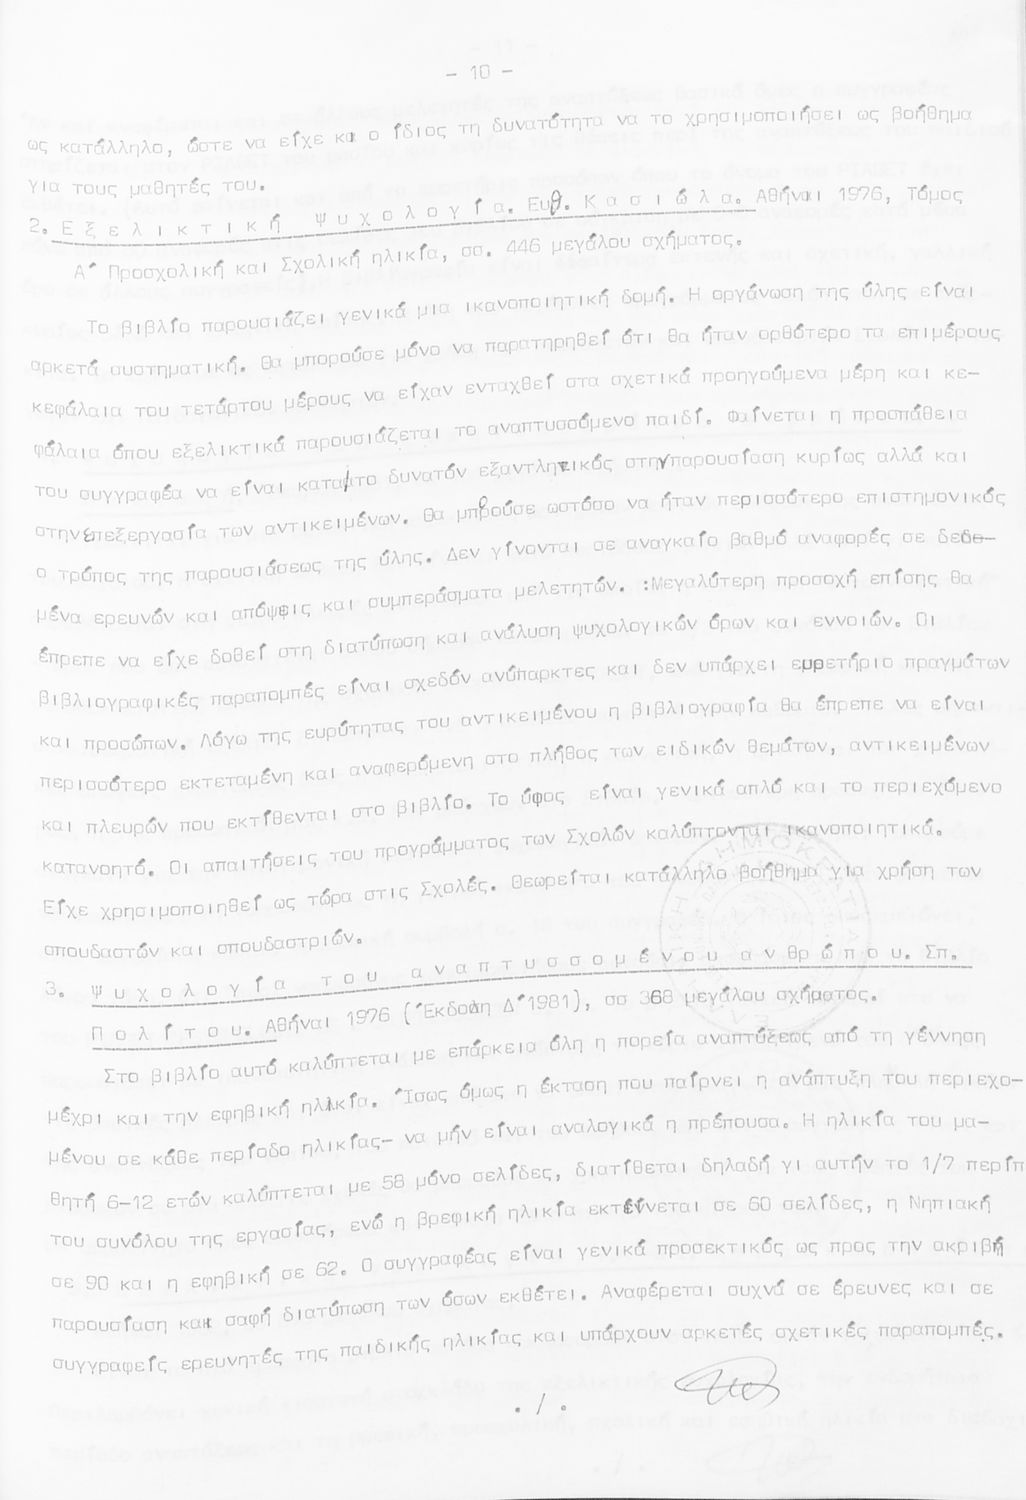 - 10 -
ως κατάλληλο, ώστε να είχε και ο ίδιος τη δυνατότητα να το χρησιμοποιήσει ως βοήθημα
για τους μαθητές του.
2. Ε ξ ε λ ι κ τ ι κ ή  Ψ υ χ ο λ ο γ ί α. Ευθ. Κ α σ ι ώ λ α. Αθήναι 1976, Τόμος
Α΄ Προσχολική και Σχολική ηλικία, σσ. 446 μεγάλου σχήματος.
Το βιβλίο παρουσιάζει γενικά μια ικανοποιητική δομή. Η οργάνωση της ύλης είναι
αρκετά συστηματική. Θα μπορούσε μόνο να παρατηρηθεί ότι θα ήταν ορθότερο τα επιμέρους
κεφάλαια του τετάρτου μέρους να είχαν ενταχθεί στα σχετικά προηγούμενα μέρη και κε-
φάλαια όπου εξελικτικά παρουσιάζεται το αναπτυσσόμενο παιδί. Φαίνεται η προσπάθεια
του συγγραφέα να είναι κατα/το δυνατόν εξαντλητικός στην παρουσίαση κυρίως αλλά και
στην επεξεργασία των αντικειμένων. Θα μπορούσε ωστόσο να ήταν περισσότερο επιστημονικός
ο τρόπος της παρουσιάσεως της ύλης. Δεν γίνονται σε αναγκαίο βαθμό αναφορές σε δεδο-
μένα ερευνών και απόψεις και συμπεράσματα μελετητών. :Μεγαλύτερη προσοχή επίσης θα
έπρεπε να είχε δοθεί στη διατύπωση και ανάλυση ψυχολογικών όρων και εννοιών. Οι
βιβλιογραφικές παραπομπές είναι σχεδόν ανύπαρκτες και δεν υπάρχει ευρετήριο πραγμάτων
και προσώπων. Λόγω της ευρύτητας του αντικειμένου η βιβλιογραφία θα έπρεπε να είναι
περισσότερο εκτεταμένη και αναφερόμενη στο πλήθος των ειδικών θεμάτων, αντικειμένων
και πλευρών που εκτίθενται στο βιβλίο. Το ύφος  είναι γενικά απλό και το περιεχόμενο
κατανοητό. Οι απαιτήσεις του προγράμματος των Σχολών καλύπτονται ικανοποιητικά.
Είχε χρησιμοποιηθεί ως τώρα στις Σχολές. Θεωρείται κατάλληλο βοήθημα για χρήση των
σπουδαστών και σπουδαστριών.
3. Ψ υ χ ο λ ο γ ί α  τ ο υ  α ν α π τ υ σ σ ο μ έ ν ο υ α ν θρ ώ π ο υ. Σπ.
Π ο λ ί τ ο υ. Αθήναι 1976 (Έκδοση Δ΄1981), σσ 368 μεγάλου σχήματος.
Στο βιβλίο αυτό καλύπτεται με επάρκεια όλη η πορεία αναπτύξεως από τη γέννηση
μέχρι και την εφηβική ηλικία. Ίσως όμως η έκταση που παίρνει η ανάπτυξη του περιεχο-
μένου σε κάθε περίοδο ηλικίας- να μήν είναι αναλογικά η πρέπουσα. Η ηλικία του μα-
θητή 6-12 ετών καλύπτεται με 58 μόνο σελίδες, διατίθεται δηλαδή γι αυτήν το 1/7 περίπ
του συνόλου της εργασίας, ενώ η βρεφική ηλικία εκτείνεται σε 60 σελίδες, η Νηπιακή
σε 90 και η εφηβική σε 62. Ο συγγραφέας είναι γενικά προσεκτικός ως προς την ακριβή
παρουσίαση και σαφή διατύπωση των όσων εκθέτει. Αναφέρεται συχνά σε έρευνες και σε
συγγραφείς ερευνητές της παιδικής ηλικίας και υπάρχουν αρκετές σχετικές παραπομπές.
. / .